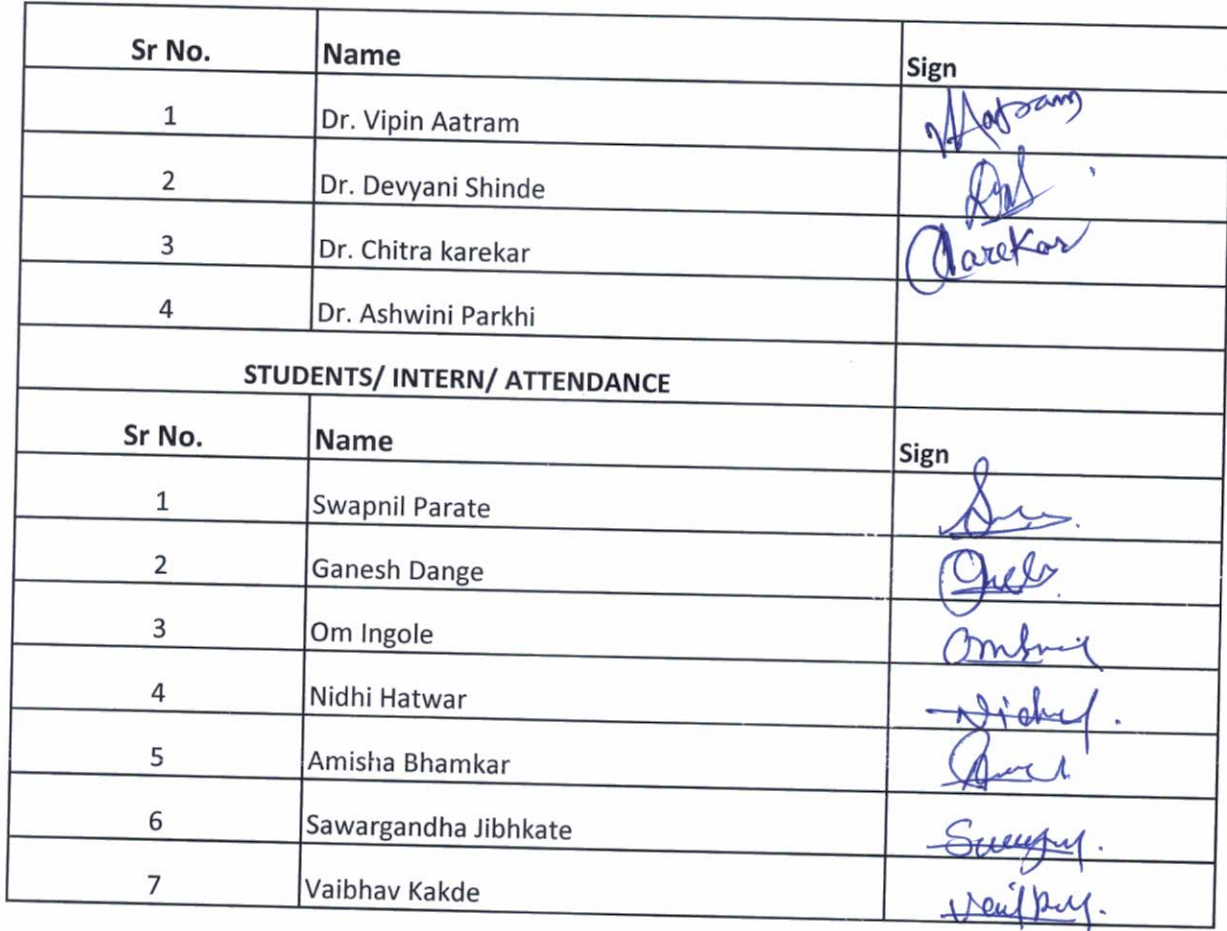 Sr No. Name Sign
1 Dr. Vipin Aatram VAatram
2 Dr. Devyani Shinde
3 Dr. Chitra karekar CKarekar
4 Dr. Ashwini Parkhi
STUDENTS/ INTERN/ ATTENDANCE
Sr No. Name Sign
1 Swapnil Parate
2 Ganesh Dange
3 Om Ingole
4 Nidhi Hatwar
5 Amisha Bhamkar
6 Sawargandha Jibhkate
7 Vaibhav Kakde